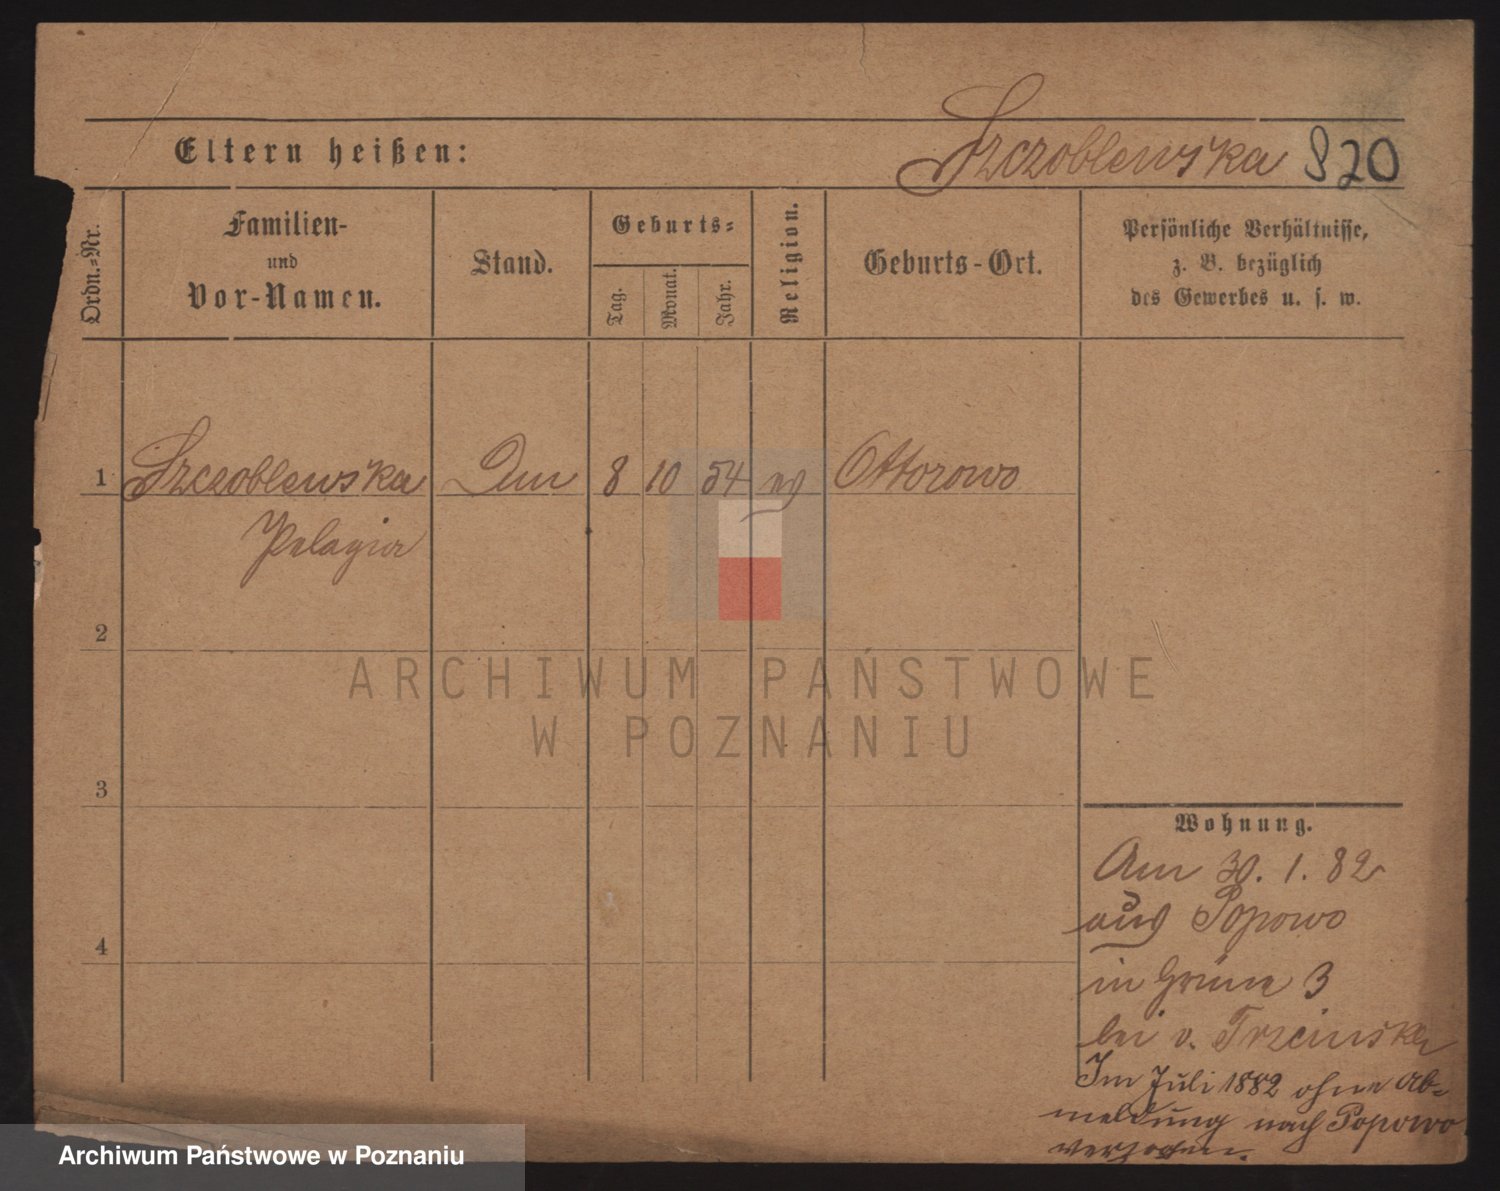 Eltern heißen:
Szczoblewska 820
Ordn.-Nr.
Familien-
und
Vor-Namen.
Stand.
Geburts-
Tag.
Monat.
Jahr.
Religion.
Geburts-Ort.
Persönliche Verhältnisse,
z. B. bezüglich
des Gewerbes u. s. w.
1 Szczoblewska 8 10 54 Ottorowo
Pelagia
2
3
4
Wohnung.
Am 30. 1. 82
aus Popowo
in Grüne 3
bei v. Trzcinska
Im Juli 1882 ohne Ab-
meldung nach Popowo
verzogen.
ARCHIWUM PAŃSTWOWE
W POZNANIU
Archiwum Państwowe w Poznaniu